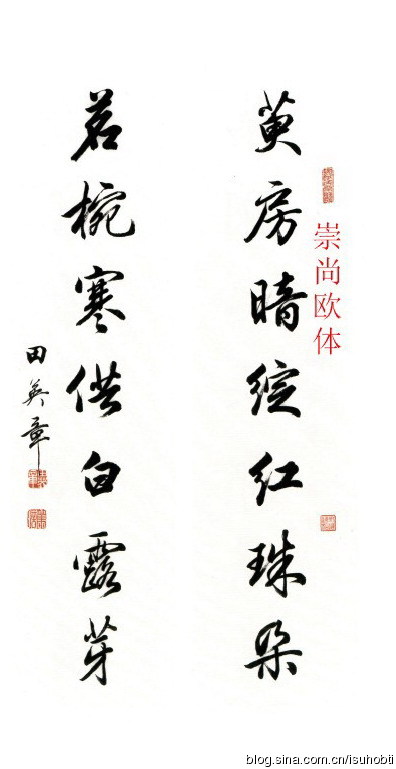 萸房暗绽红珠朵
茗椀寒供白露芽
田英章
崇尚欧体
blog.sina.com.cn/isuhobti